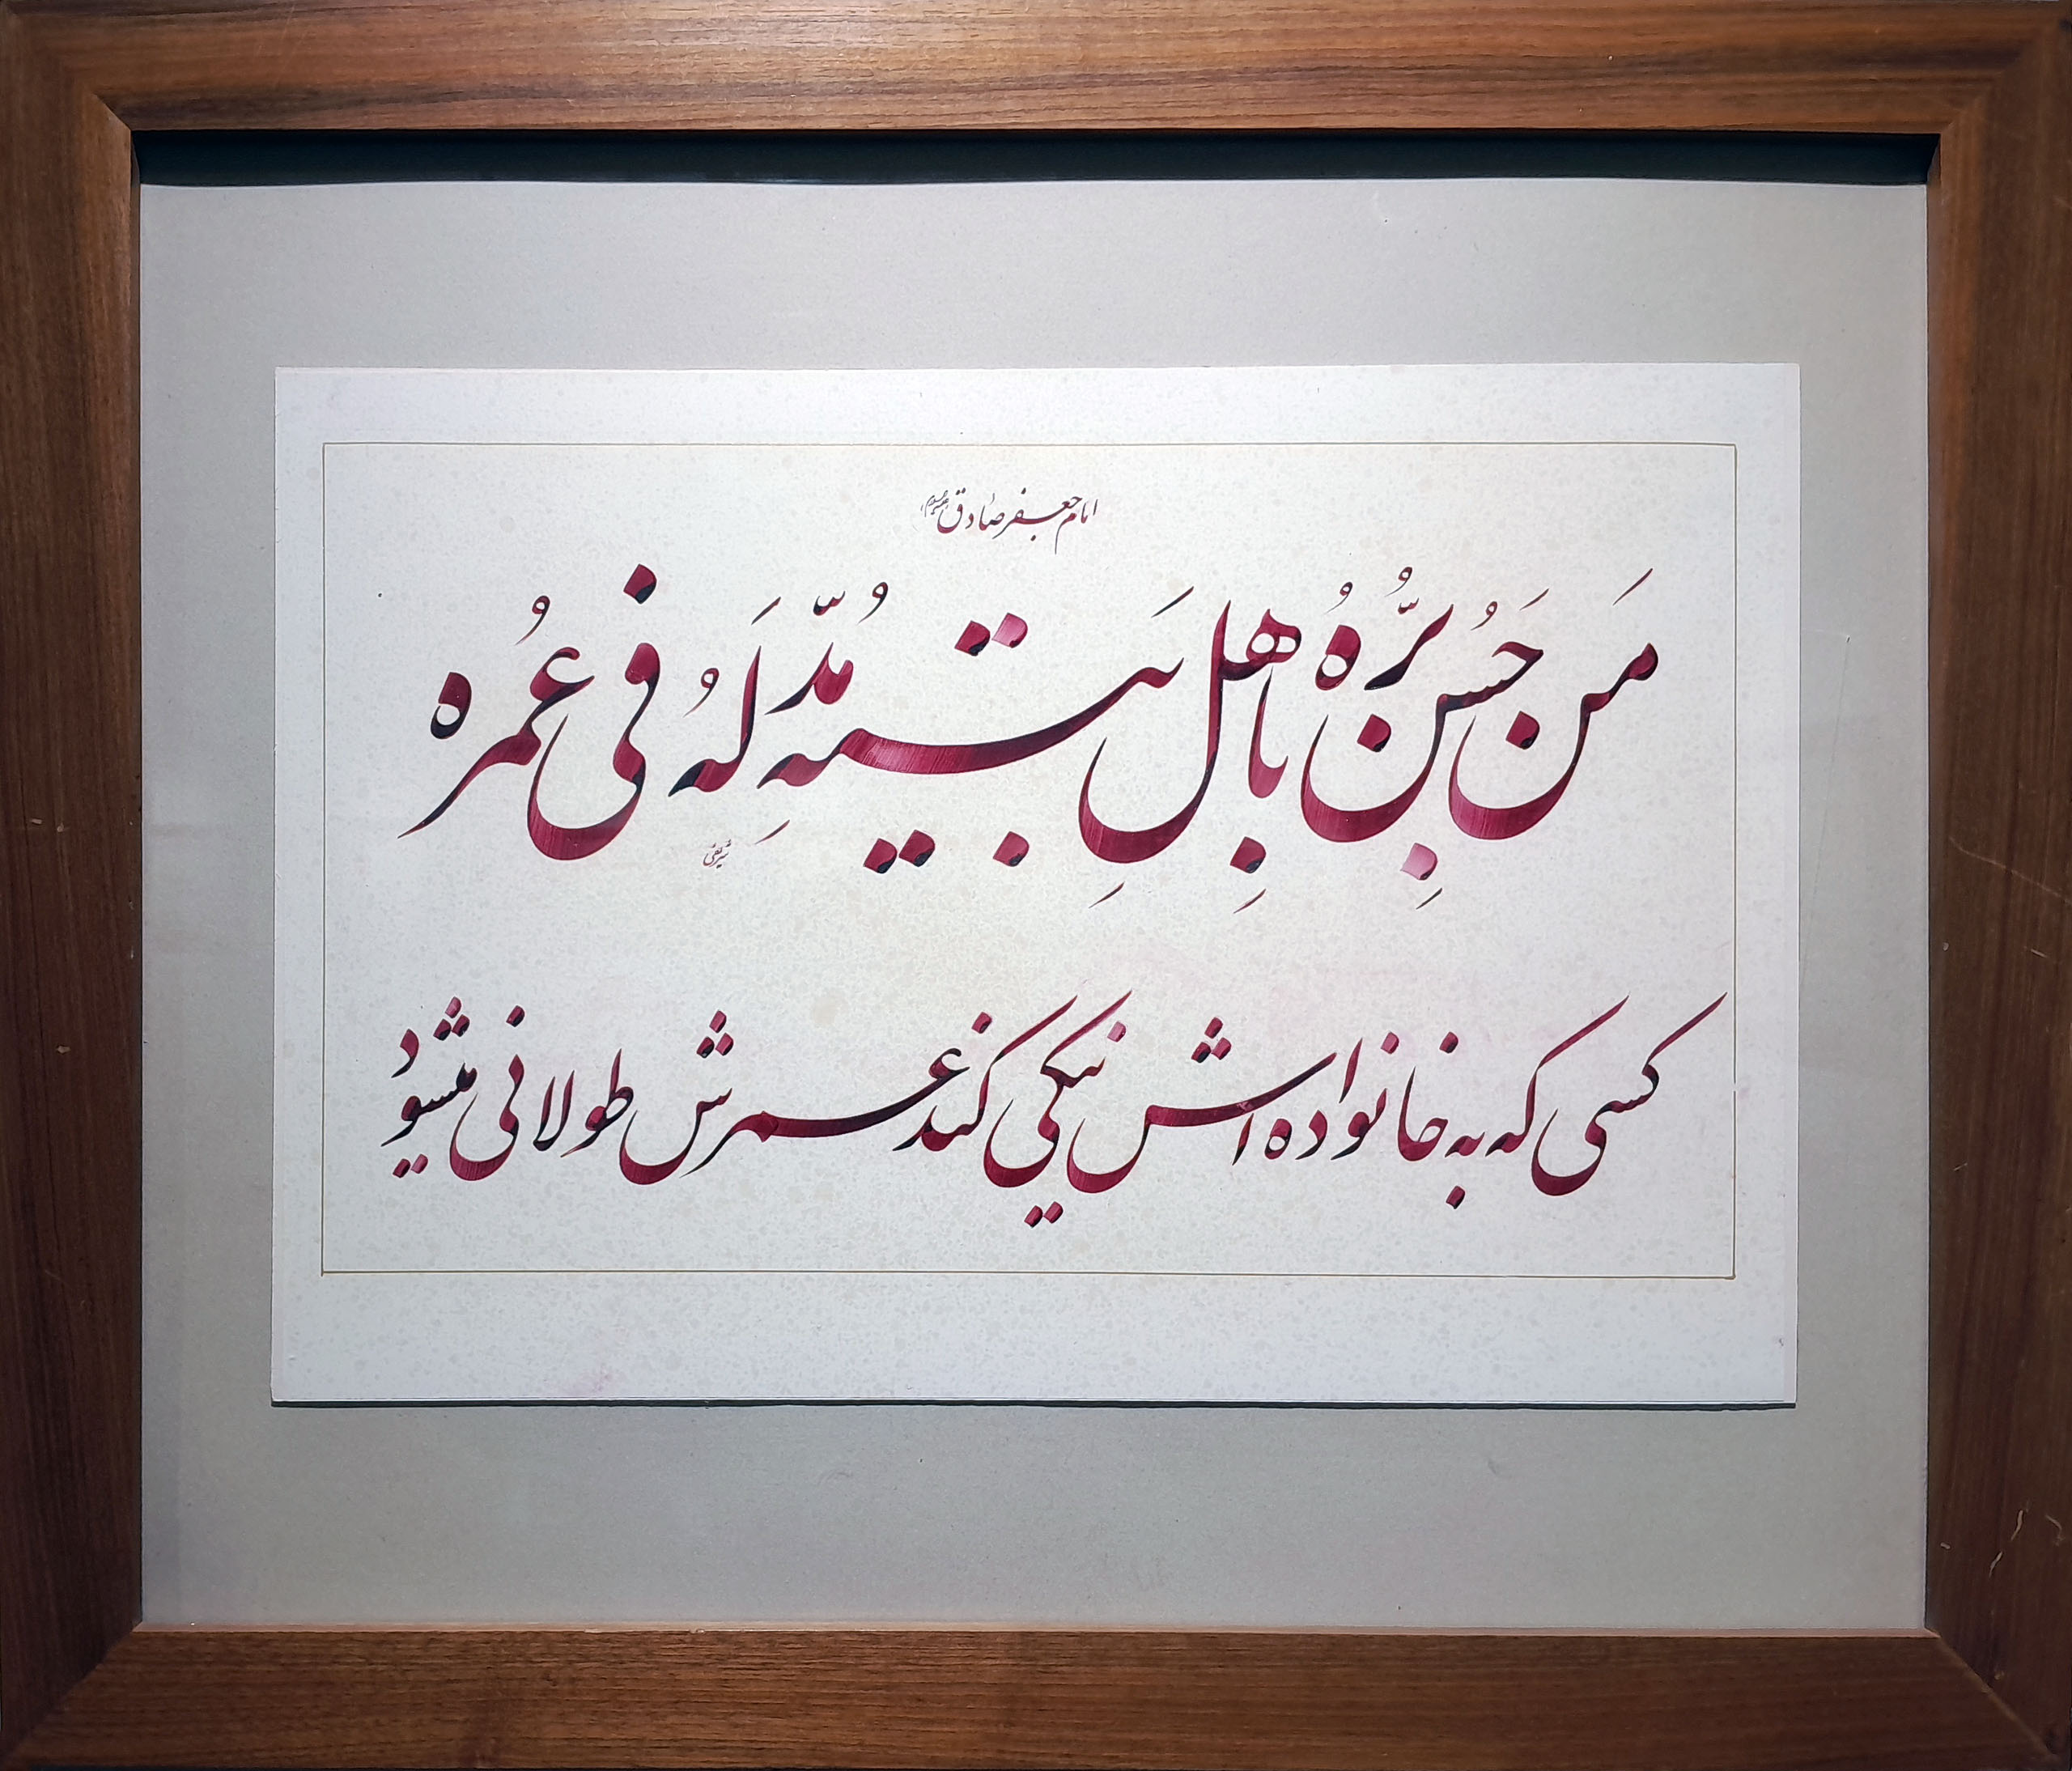 امام جعفر صادق علیه السلام
مَن حَسُن بِرُّهُ بِاهلِ بَیتِهِ مُدَّ لَهُ فی عُمره
کسی که به خانواده اش نیکی کند عمرش طولانی میشود